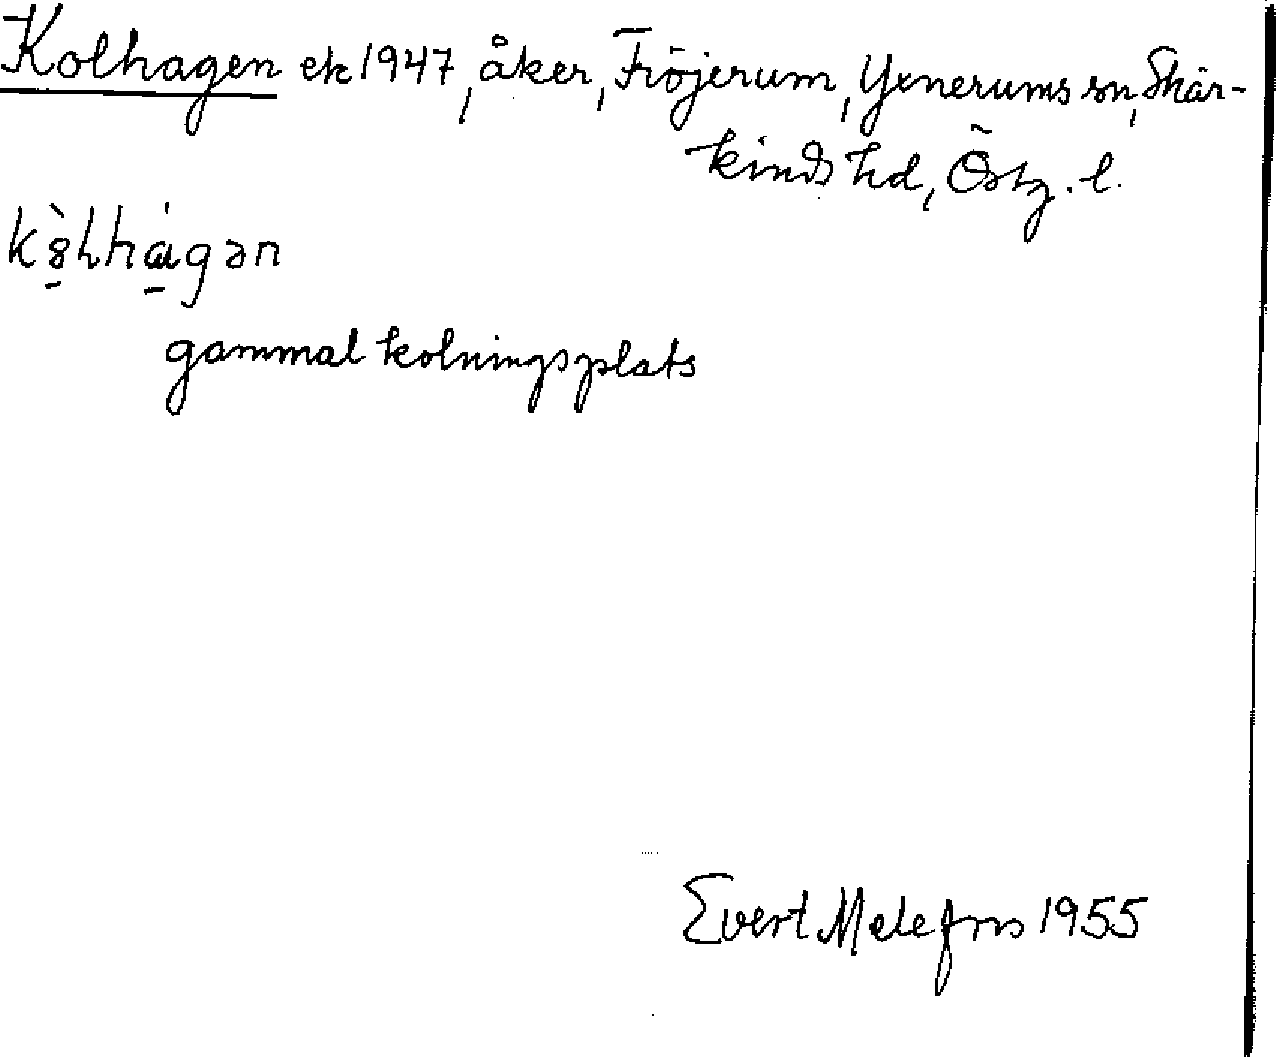 Kolhagen ek 1947, åker, Fröjerum, Yxnerums sn, Skär-
kinds hd, Östg. l.
kò̱lhá̱gən
gammal kolningsplats
Evert Melefors 1955